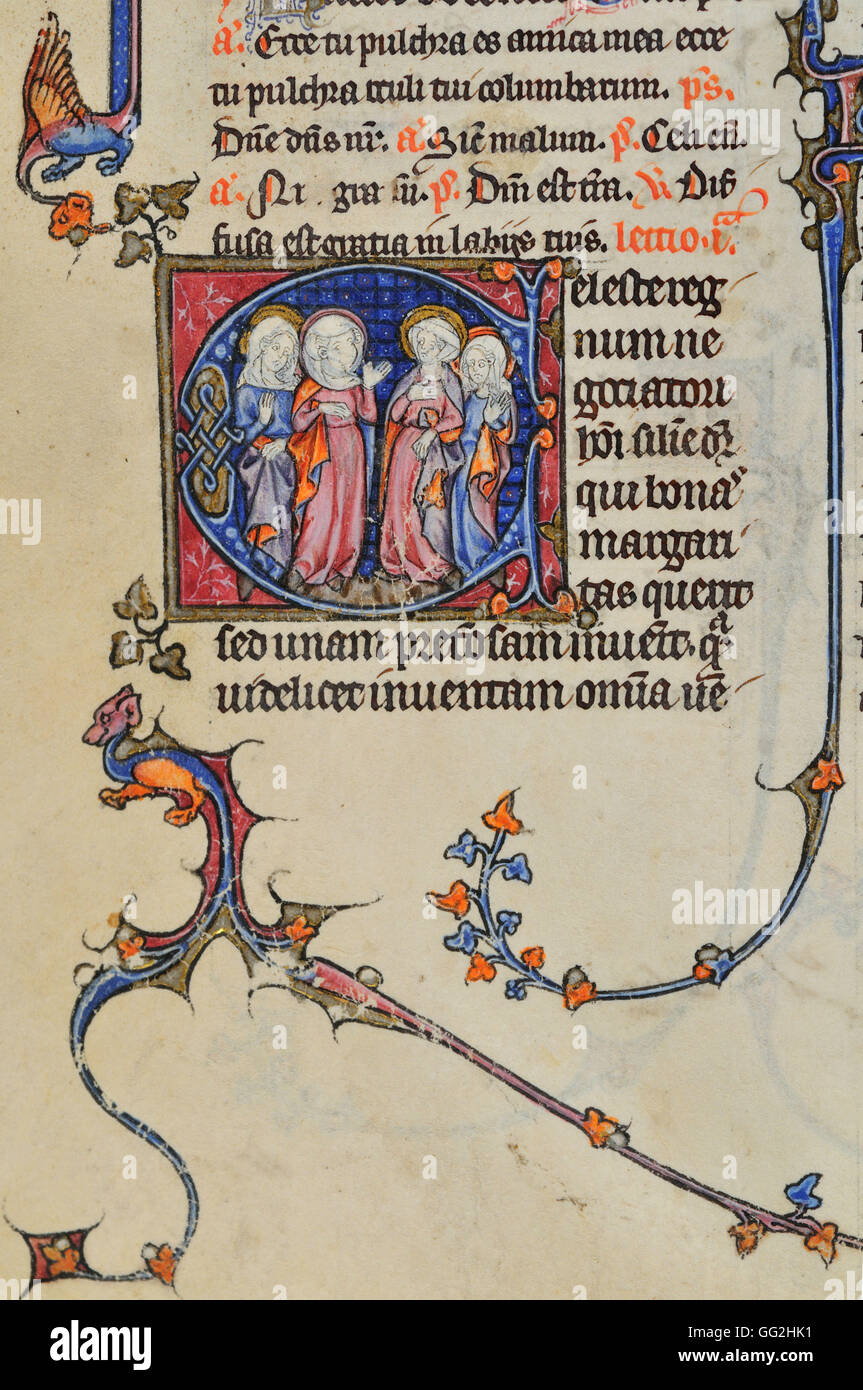 a. Ecce tu pulchra es amica mea ecce
tu pulchra oculi tui columbarum. ps.
Dñe dñs nr̃. a. Sic̃ malum. p̃. Celi eñ.
a. Ni gra sũ. p̃. Dñi est tr̃a. v̾. Dif
fusa est gratia in labijs tuis. lectio. i.ᵃ
eleste reg
num ne
gociatori
hõi sil̃e
qui bonas
margari
tas querit
sed unam preciosam
uidelicet inuentam om̃ia
alamy stock photo
Image ID: GG2HK1
www.alamy.com